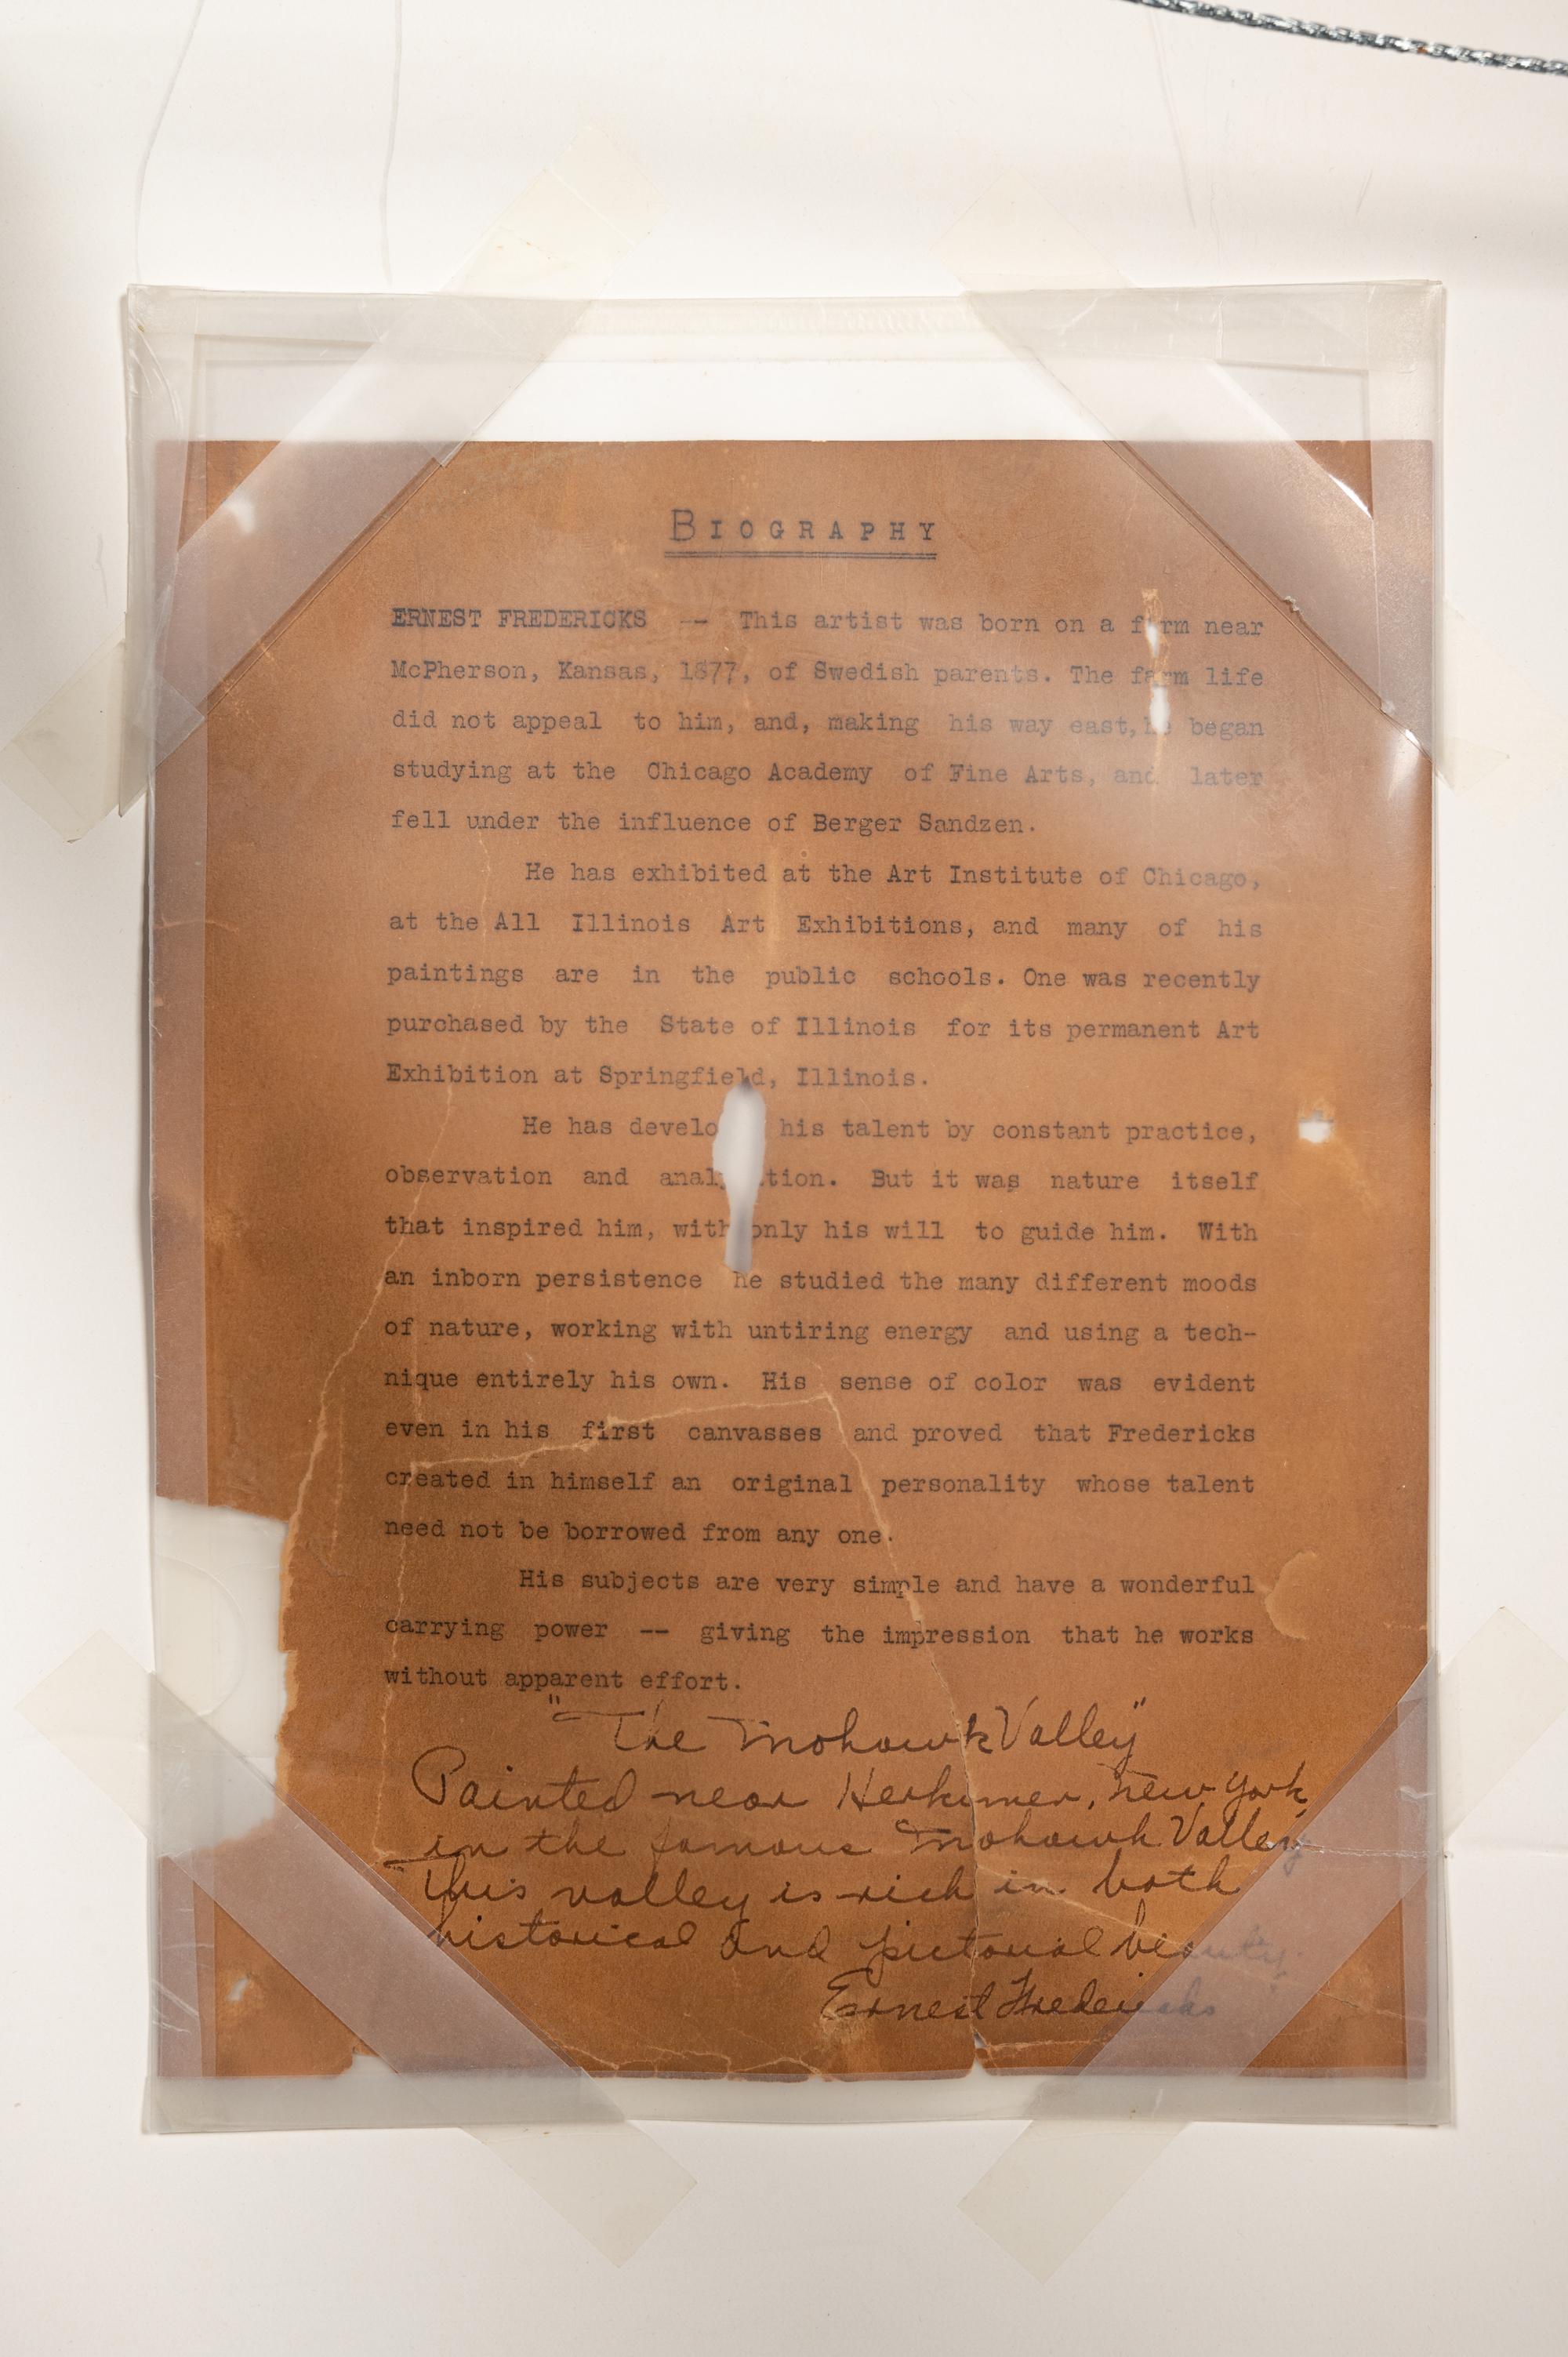 BIOGRAPHY
ERNEST FREDERICKS -- This artist was born on a farm near
McPherson, Kansas, 1877, of Swedish parents. The farm life
did not appeal to him, and, making his way east, he began
studying at the Chicago Academy of Fine Arts, and later
fell under the influence of Berger Sandzen.
He has exhibited at the Art Institute of Chicago,
at the All Illinois Art Exhibitions, and many of his
paintings are in the public schools. One was recently
purchased by the State of Illinois for its permanent Art
Exhibition at Springfield, Illinois.
He has develo his talent by constant practice,
observation and tion. But it was nature itself
that inspired him, with only his will to guide him. With
an inborn persistence he studied the many different moods
of nature, working with untiring energy and using a tech-
nique entirely his own. His sense of color was evident
even in his first canvasses and proved that Fredericks
created in himself an original personality whose talent
need not be borrowed from any one.
His subjects are very simple and have a wonderful
carrying power -- giving the impression that he works
without apparent effort.
"The Mohawk Valley"
Painted near Herkimer, New York
in the famous Mohawk Valley
This valley is rich in both
historical and pictorial beauty.
Ernest Fredericks